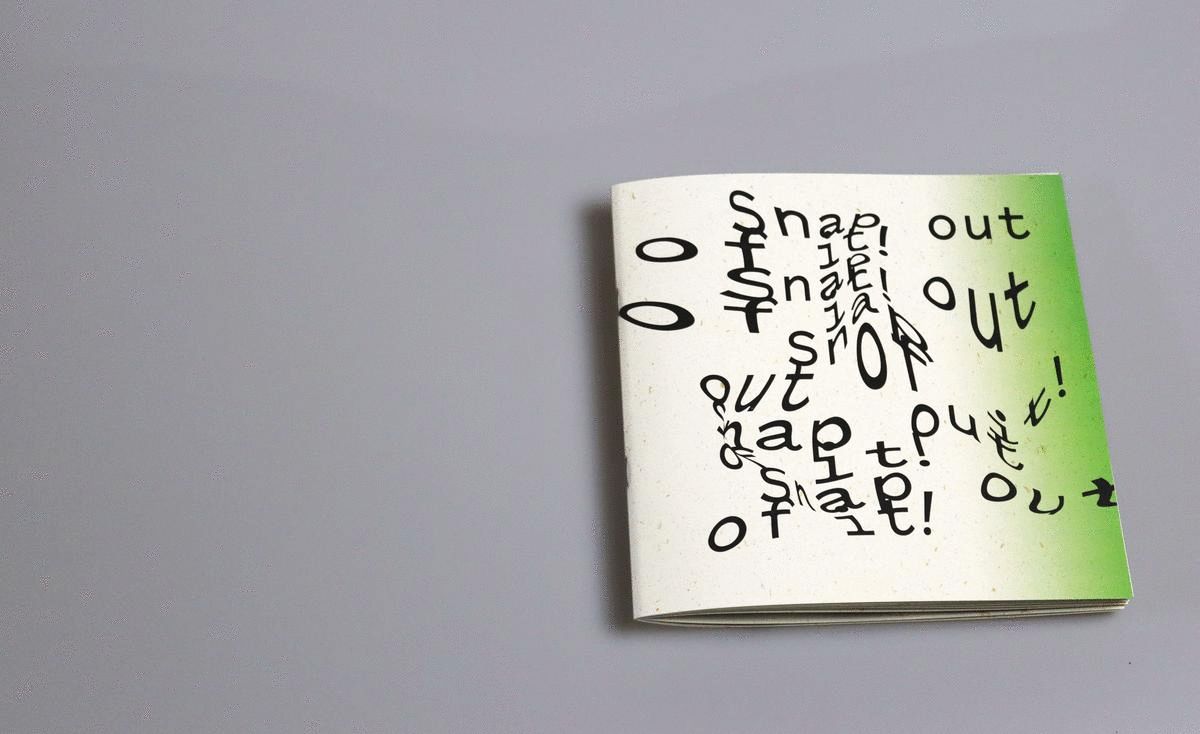 Snap out
of it!
Snap out
of it!
snap
out Of
snap out
of it! it!
Snap out
of it!